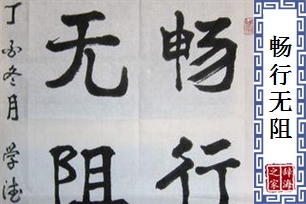 畅行
无阻
丁 冬月 学
畅行无阻
辞海
之家